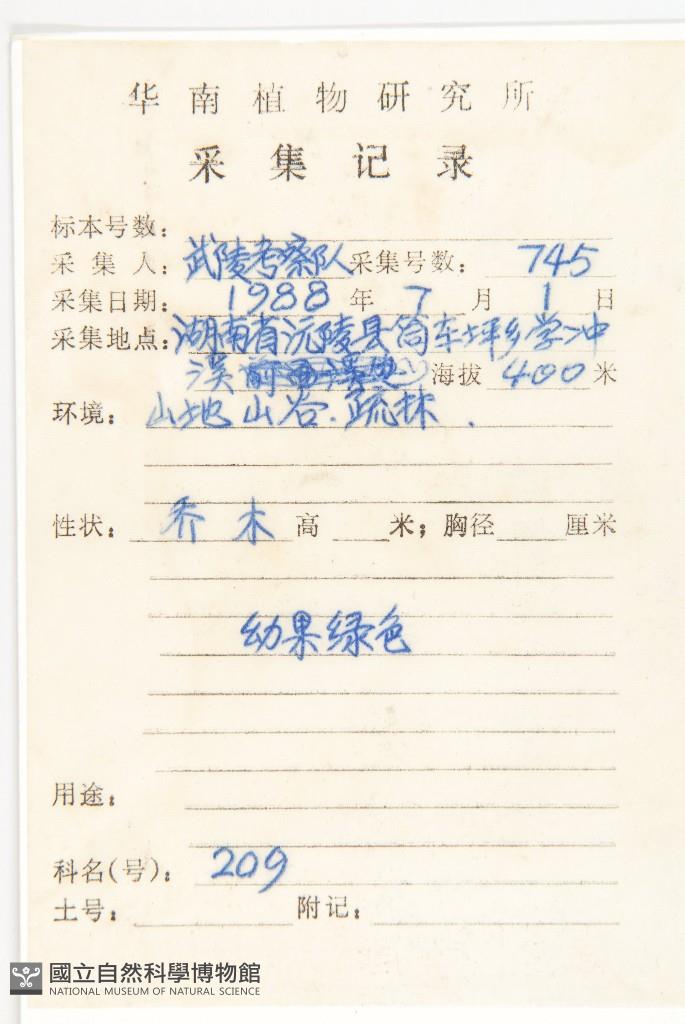 华南植物研究所
采集记录
标本号数：
采集人：武陵考察队 采集号数：745
采集日期：1988年7月1日
采集地点：湖南省沅陵县筒车坪乡学冲
溪 海拔 400 米
环境：山地山谷.疏林.
性状：乔木 高 米；胸径 厘米
幼果绿色
用途：
科名(号)：209
土号： 附记：
國立自然科學博物館
NATIONAL MUSEUM OF NATURAL SCIENCE